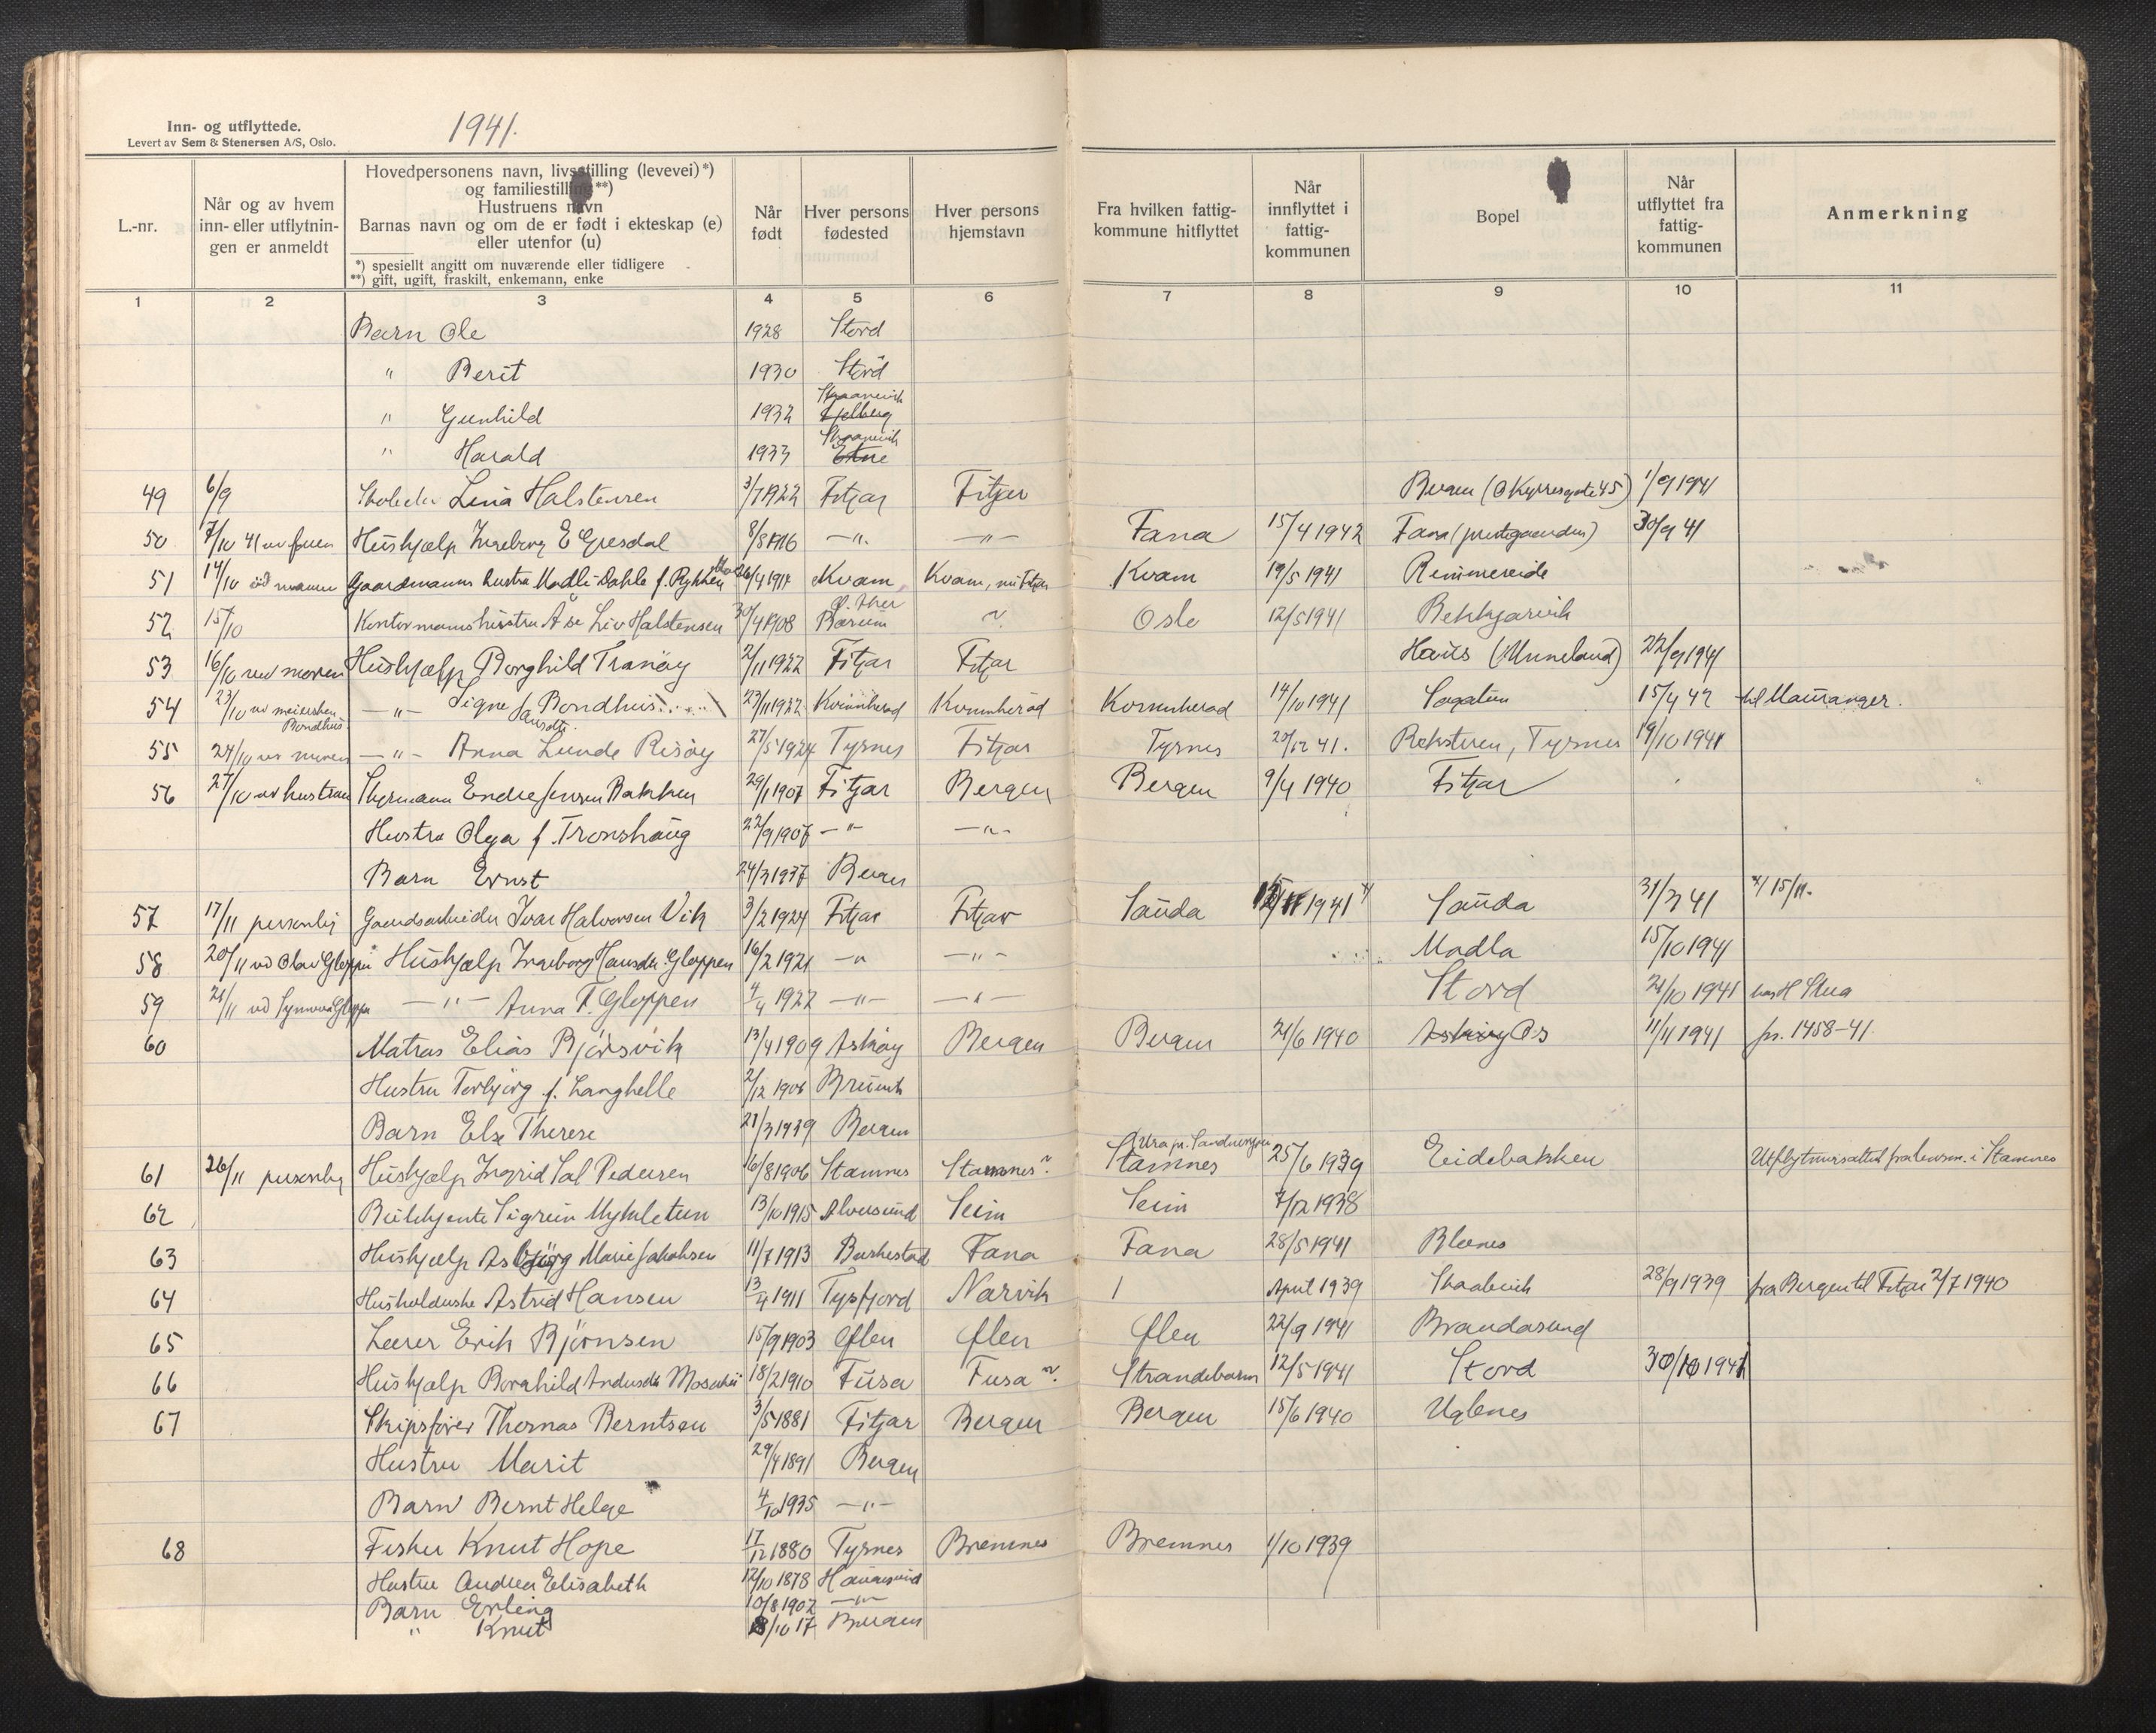 Inn- og utflyttede.
Levert av Sem & Stenersen A/S, Oslo.
1941.
L.-nr.
Når og av hvem inn- eller utflytnin-gen er anmeldt
Hovedpersonens navn, livsstilling (levevei) *) og familiestilling **)
Hustruens navn
Barnas navn og om de er født i ekteskap (e) eller utenfor (u)
*) spesiellt angitt om nuværende eller tidligere
**) gift, ugift, fraskilt, enkemann, enke
Når født
Hver persons fødested
Hver persons hjemstavn
Fra hvilken fattig-kommune hitflyttet
Når innflyttet i fattig-kommunen
Bopel
Når utflyttet fra fattig-kommunen
Anmerkning
1 2 3 4 5 6 7 8 9 10 11
Barn Ole 1928 Stord
" Berit 1930 Stord
" Gunhild 1932 Skaanevik Fjelberg
" Harald 1933 Skaanevik Etne
49 6/9 Lina Halstensen 3/7 1922 Fitjar Fitjar Bergen (O Kyrresgate 45) 1/9 1941
50 7/10 41 av faren Hushjælp Ingeborg E Gjesdal 8/8 1916 —"— —"— Fana 15/4 1942 Fana (prestegaarden) 30/9 41
51 14/10 ved mannen Gaardmanns hustru Madli Dahle f. Rykken 26/4 1914 Kvam Kvam, nu Fitjar Kvam 19/5 1941 Rimmereide
52 15/10 Kontormannshustru Åse Liv Halstensen 30/4 1908 Ø. Aker Bærum ~ Oslo 12/5 1941 Bekkjarvik
53 16/10 ved moren Hushjælp Borghild Tranøy 2/11 1922 Fitjar Fitjar Haus (Unneland) 22/9 1941
54 23/10 av meiersken Bondhus —"— Signe Bondhus 23/11 1922 Kvinnherad Kvinnherad Kvinnherad 14/10 1941 Sagatun 15/4 42 til Mauranger.
55 24/10 av moren —"— Anna Lunde Risøy 27/5 1924 Tysnes Fitjar Tysnes 20/12 41. Reksteren, Tysnes 19/10 1941
56 27/10 av hustruen Styrmann Endre Jensen Bakken 29/1 1907 Fitjar Bergen Bergen 9/4 1940 Fitjar
Hustru Olga f. Tronshaug 22/9 1907 —"— —"—
Barn Ernst 24/3 1937 Bergen
57 17/11 personlig Gaardsarbeider Ivar Halvorsen Vik 3/2 1924 Fitjar Fitjar Sauda 1941 Sauda 31/3 41 15/11.
58 20/11 ved Olav Gloppen Hushjælp Ingeborg Hansdtr. Gloppen 16/2 1921 —"— —"— Madla 15/10 1941
59 21/11 ved Synnøva Gloppen —"— Anna T. Gloppen 4/4 1922 —"— —"— Stord 21/10 1941 hos H Stua
60 Matros Elias Bjørsvik 13/4 1909 Askøy Bergen Bergen 21/6 1940 Askøy Os 11/11 1941 jn. 1458-41.
Hustru Torbjørg f. Langhelle 2/12 1906 Bruvik
Barn Else Therese 21/3 1939 Bergen
61 26/11 personlig Hushjælp Ingrid Sal Pedersen 16/8 1906 Stamnes Stamnes ~. Stamnes 25/6 1939 Eidebakken Utflytningsattest fra lensm. i Stamnes
62 Budeiejente Sigrun Mykletun 13/10 1915 Alversund Seim Seim 7/12 1938
63 Hushjælp Asbjørg Marie Jakobsen 11/7 1913 Barkestad Fana Fana 28/5 1941 Blænes
64 Husholderske Astrid Hansen 13/4 1911 Tysfjord Narvik / April 1939 Skaalevik 28/9 1939 fra Bergen til Fitjar 2/7 1940
65 Lærer Erik Bjørnsen 15/9 1903 Ølen Ølen Ølen 22/9 1941 Brandasund
66 Hushjælp Borghild Andersdtr 18/2 1910 Fusa Fusa ~. Strandebarm 12/5 1941 Stord 30/10 1941
67 Skipsfører Thomas Berntsen 3/5 1881 Fitjar Bergen Bergen 15/6 1940 Uglenes
Hustru Marit 29/4 1891 Bergen
Barn Bernt Helge 4/10 1935 —"—
68 Fisker Knut Hope 17/12 1880 Tysnes Bremnes Bremnes 1/10 1939
Hustru Andrea Elisabeth 12/10 1878 Haugesund
Barn Erling 10/8 1902 —"—
" Knut 8/10 17 Bergen